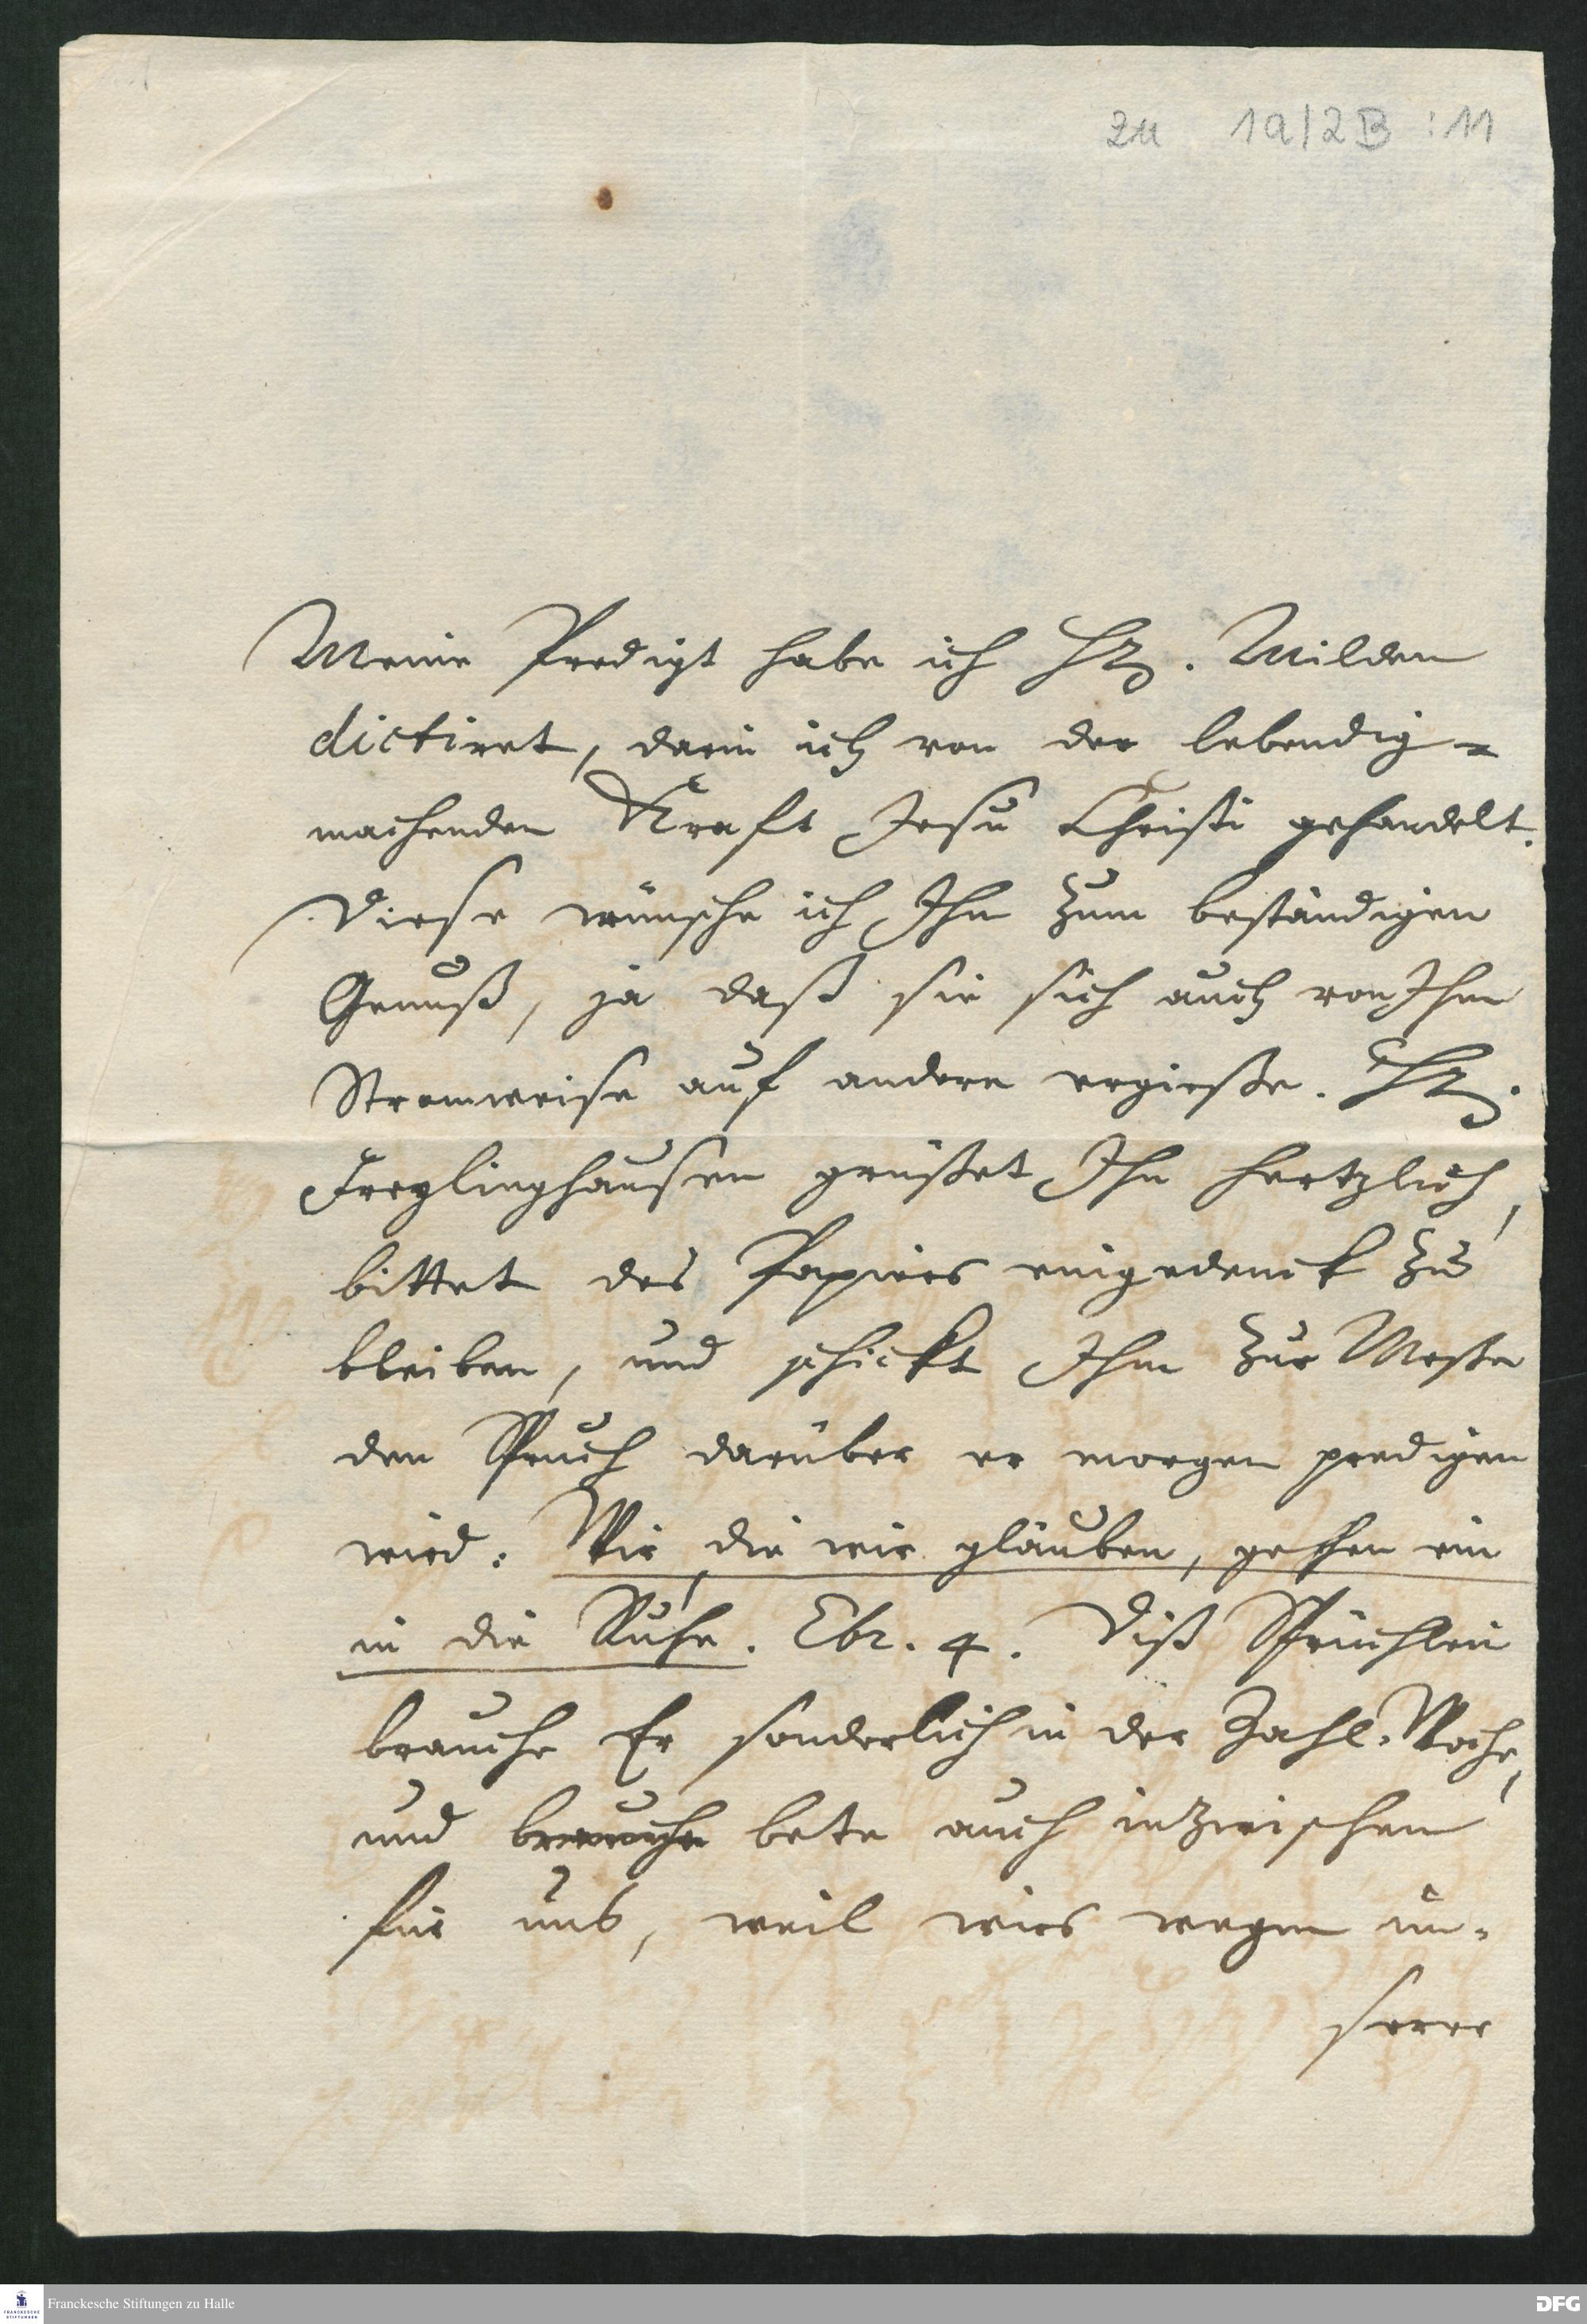 zu 1a/2B : 11
Meine Predigt habe ich Hr. Milden
dictiret, darin ich von der lebendig=
machenden Krafft Jesu Christi gehandelt.
Diese wünsche ich Ihm zum beständigen
Genuß, ja daß sie sich auch von Ihm
Stromweise auf andere ergieße. Hr.
Freylinghausen grüßet Ihn hertzlich,
bittet des Papiers eingedenck zu
bleiben, und schickt Ihm zur Meße
den Spruch darüber er morgen predigen
wird: Wir, die wir gläuben, gehen ein
in die Ruhe. Ebr. 4. Diß Sprüchlein
brauche Er sonderlich in der Zahl-Woche,
und brauche bete auch inzwischen
für uns, weil wirs wegen un-
serer
Franckesche Stiftungen zu Halle
FRANCKESCHE
STIFTUNGEN
DFG